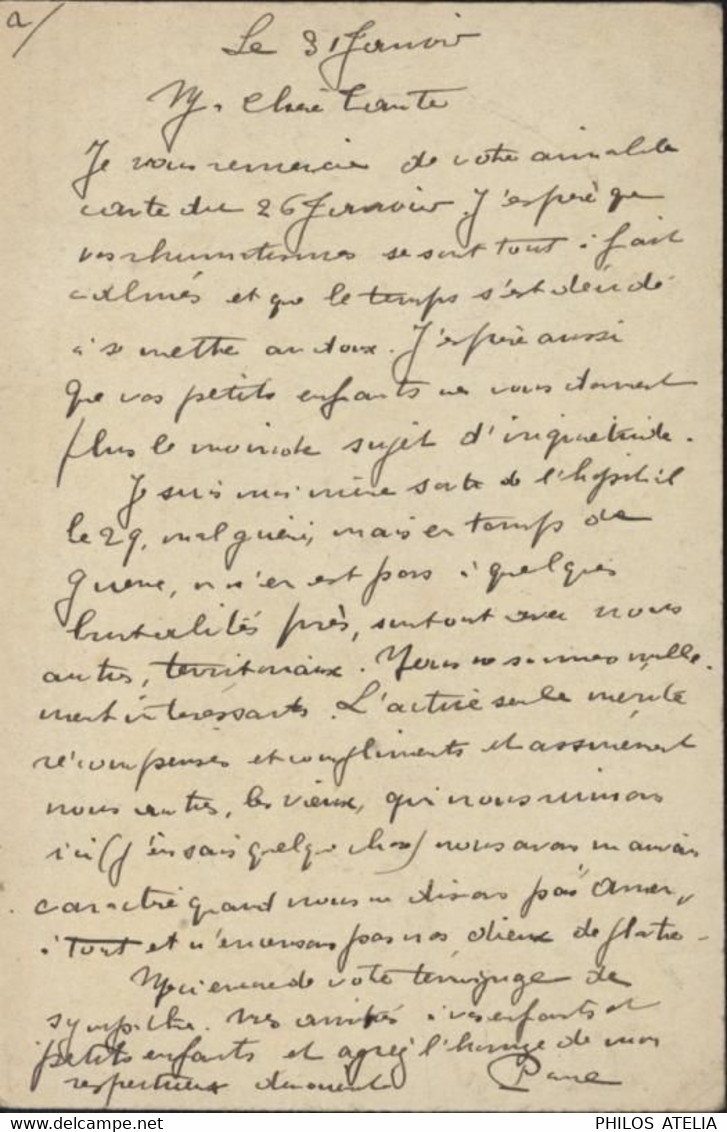 a/
Le 31 Janvier
M. Chère Tante
Je vous remercie de votre aimable
carte du 26 Janvier. J'espère que
vos rhumatismes se sont tout à fait
calmés et que le temps s'est décidé
à se mettre au doux. J'espère aussi
que vos petits enfants ne vous donnent
plus le moindre sujet d'inquiétude.
Je suis moi même sorti de l'hôpital
le 29, mal guéri, mais en temps de
guerre, on n'en est pas à quelques
brutalités près, surtout avec nous
autres, territoriaux. Nous ne sommes nulle
ment intéressants. L'active seule mérite
récompenses et compliments et assurément
nous autres, les vieux, qui nous
ici (j'en sais quelque chose) nous avons mauvais
caractère quand nous ne disons pas "Amen"
à tout et n'encensons pas nos dieux de plâtre.
Merci encore de votre témoignage de
sympathie. Mes amitiés à vos enfants et
petits enfants et agréez l'hommage de mon
respectueux dévouement
PHILOS ATELIA